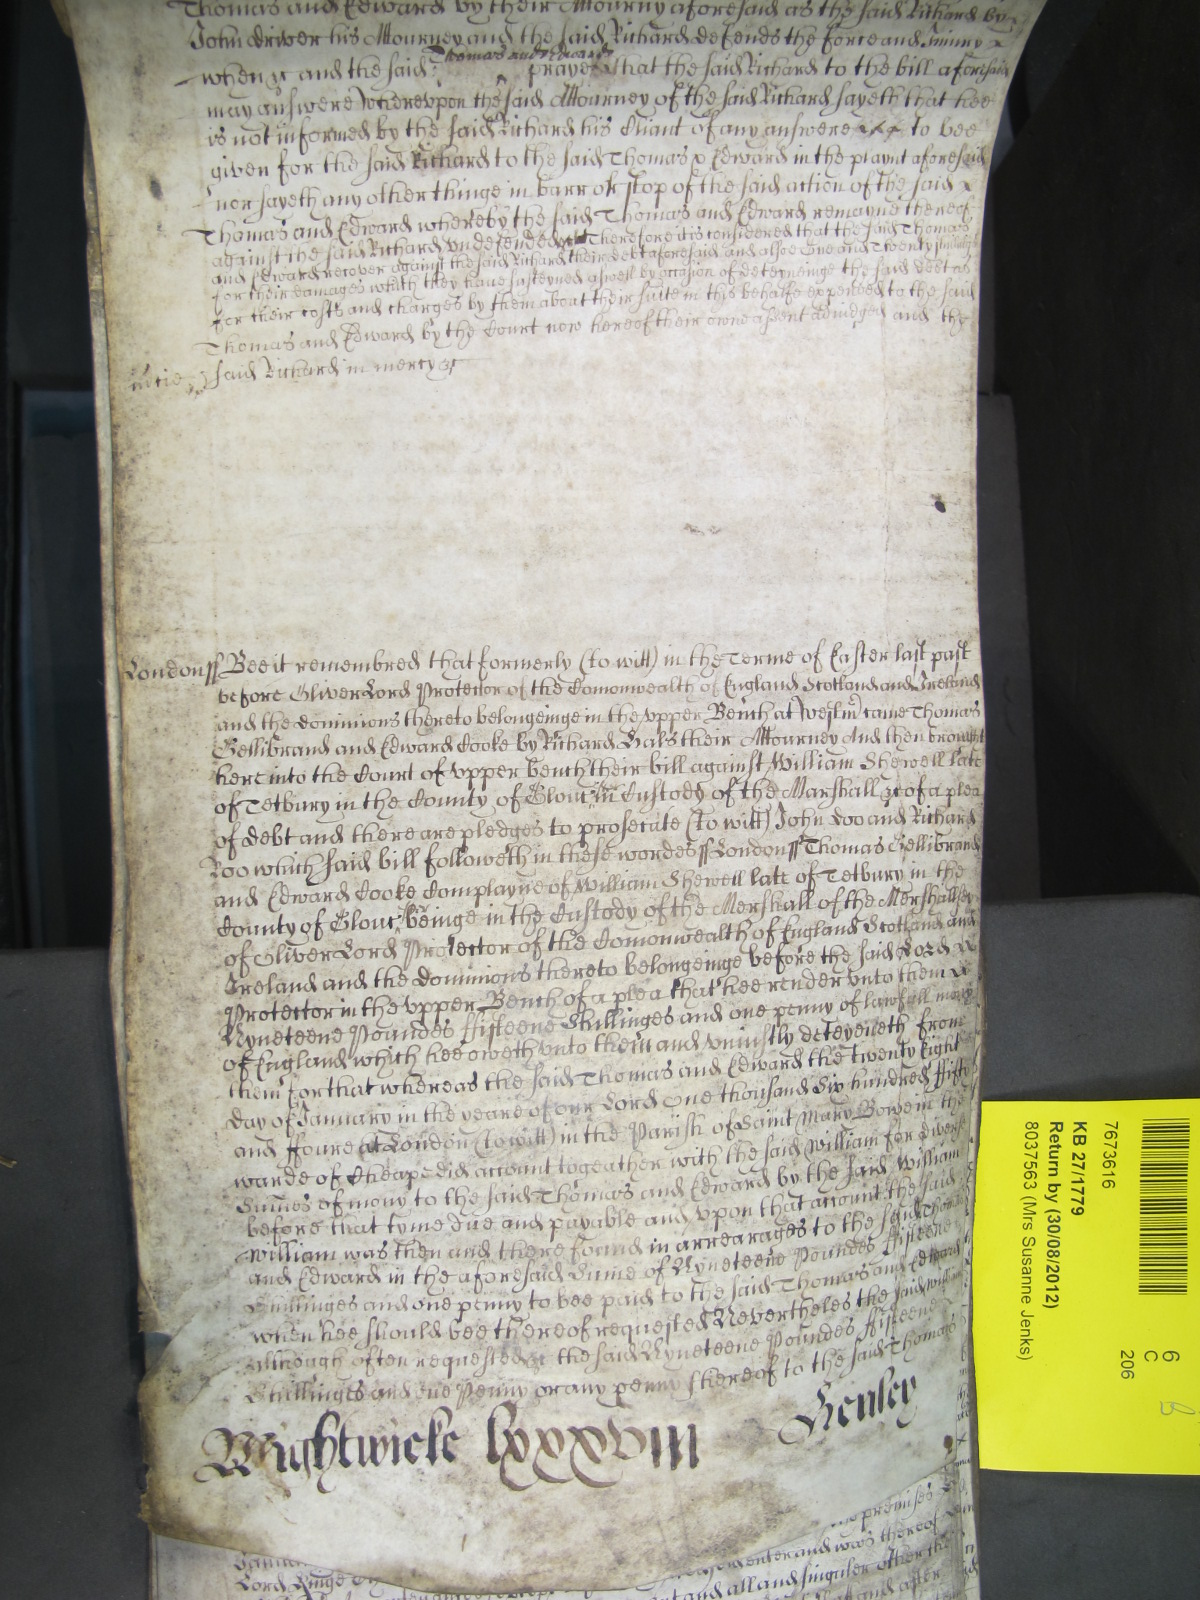 Thomas and Edward by their Attourny aforesaid as the said Richard by
John driver his Attourney and the said Richard defends the force and Iniury
when &c and the said Thomas and Edward prayes that the said Richard to the bill aforesaid
may answere whereupon the said Attourney of the said Richard sayeth that hee
is not informed by the said Richard his Cliant of any answere to bee
given for the said Richard to the said Thomas & Edward in the playnt aforesaid
nor sayeth any other thinge in barr or stop of the said action of the said
Thomas and Edward whereby the said Thomas and Edward remayne thereof
against the said Richard undefended Therefore it is considered that the said Thomas
and Edward recover against the said Richard their debt aforesaid and alsoe One and Twenty shillings
for their damages which they have susteyned aswell by occasion of deteyneinge the said debt as
for their costs and charges by them about their suite in this behalfe expended to the said
Thomas and Edward by the Court now hereof their owne assent adiudged and the
said Richard in mercy &c
London ss Bee it remembred that formerly (to witt) in the Terme of Easter last past
before Oliver Lord Protector of the Comonwealth of England Scotland and Ireland
and the dominions thereto belongeinge in the upper Bench at Westm came Thomas
Gellibrand and Edward Cooke by Richard Hals their Attourney And then brought
here into the Court of upper bench their bill against William Shewell late
of Tetbury in the County of Glouc in Custody of the Marshall &c of a plea
of debt and there are pledges to prosecute (to witt) John Doo and Richard
Roo which said bill followeth in these wordes ss London ss Thomas Gellibrand
and Edward Cooke Complayne of William Shewell late of Tetbury in the
County of Glouc beinge in the Custody of the Mershall of the Mershallsey
of Oliver Lord Protector of the Comonwealth of England Scotland and
Ireland and the dominions thereto belongeinge before the said Lord
Protector in the upper Bench of a plea that hee render unto them
Nyneteene Poundes ffifteene Shillinges and one penny of lawfull money
of England which hee oweth unto them and uniustly deteyneth from
them for that whereas the said Thomas and Edward the twenty Eight
day of January in the yeare of our Lord One thousand Six hundred ffifty
and foure at London (to witt) in the Parish of Saint Mary Bowe in the
warde of Cheape did account togeather with the said William for divers
Sumes of mony to the said Thomas and Edward by the said William
before that tyme due and payable and upon that account the said
William was then and there found in arrearages to the said Thomas
and Edward in the aforesaid Sume of Nyneteene Poundes ffifteene
Shillinges and one penny to bee paid to the said Thomas and Edward
when hee should bee thereof requested Nevertheles the said William
although often requested &c the said Nyneteene Poundes ffifteene
Shillinges and one Penny or any penny thereof to the said Thomas
Wightwicke lxxxviii Henley
premises
and was thereof
and all and singuler other the
Lord Kinge
and after
7673616
KB 27/1779
Return by (30/08/2012)
8037563 (Mrs Susanne Jenks)
6
C
206